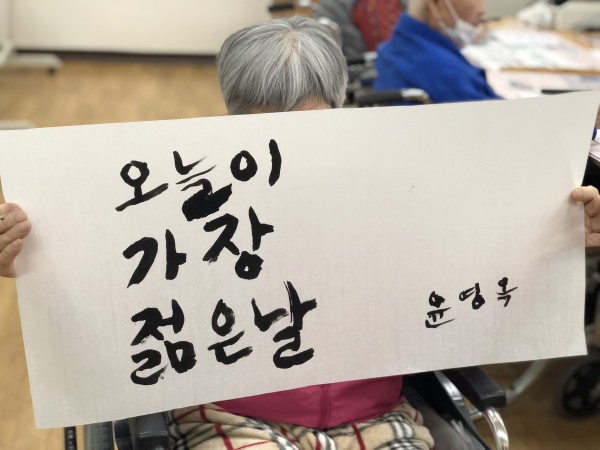 오늘이
가장
젊은날
윤영옥